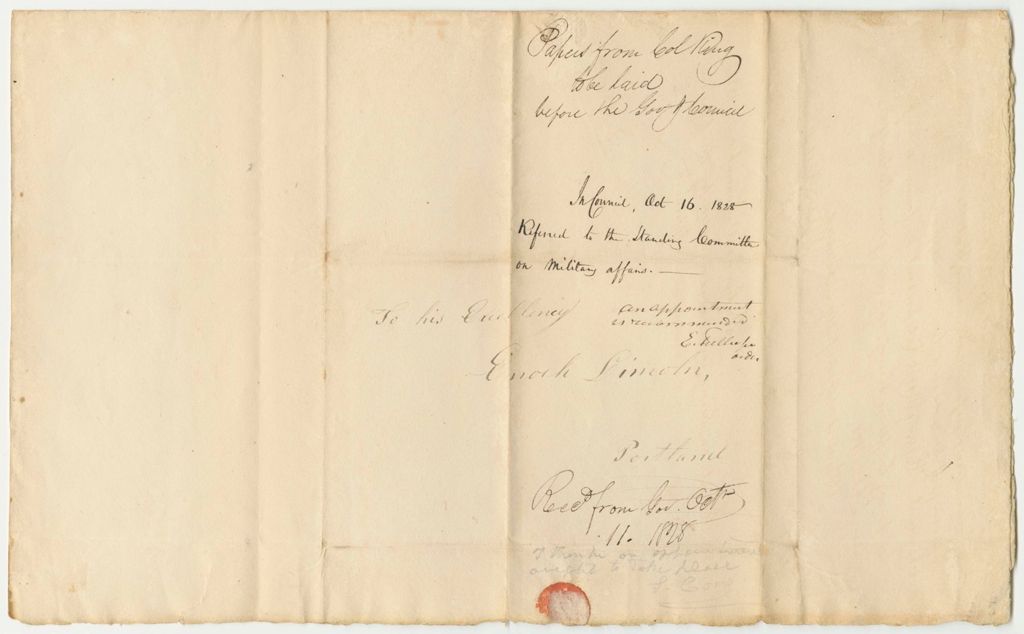 Papers from Col King
to be laid
before the Gov & Council
In Council, Oct 16. 1828
Referred to the Standing Committee
on Military affairs. —
To his Excellency
an appointment
is recommended
E.
order
Enoch Lincoln,
Portland
Recd from Gov. Octr
11. 1828
I think an appointment
ought to take place